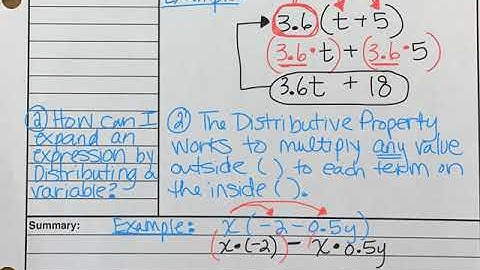 3.6(t+5)
(3.6•t)+(3.6•5)
3.6t + 18
② How can I
expand an
expression by
Distributing a
variable?
②' The Distributive Property
works to multiply any value
outside ( ) to each term on
the inside ( ).
Summary:
Example: x(-2-0.5y)
(x•(-2)) - (x•0.5y